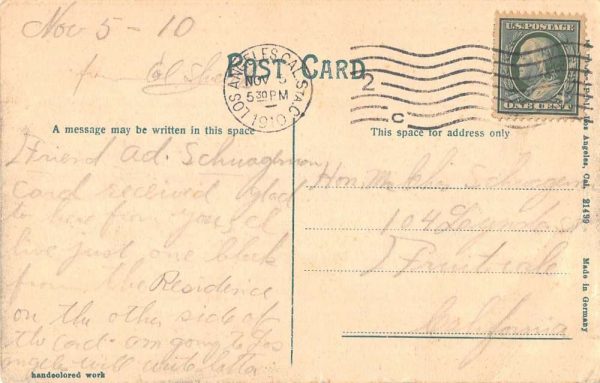 Nov 5 - 10
from Col
POST CARD
LOS ANGELES, CAL. STA. C
NOV 5
5 30 PM
1910
2
C
U.S. POSTAGE
ONE CENT
A message may be written in this space
This space for address only
Friend Ad.
Card received glad
to hear from you
live just one block
from the Residence
on the other side of
the card am going to Los
Angeles will write latter
Hon.
104
Fruitvale
California
Los Angeles, Cal. 21439 Made in Germany
handcolored work